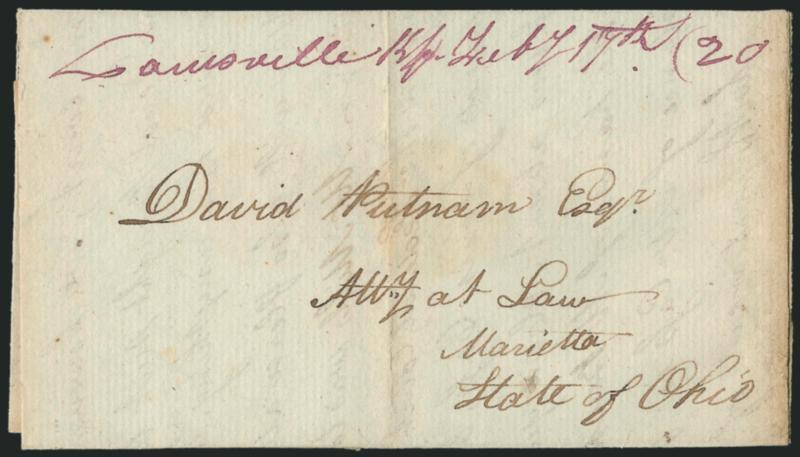 Louisville Ky. Feby 17th (20
David Putnam Esqr.
Atty at Law
Marietta
State of Ohio